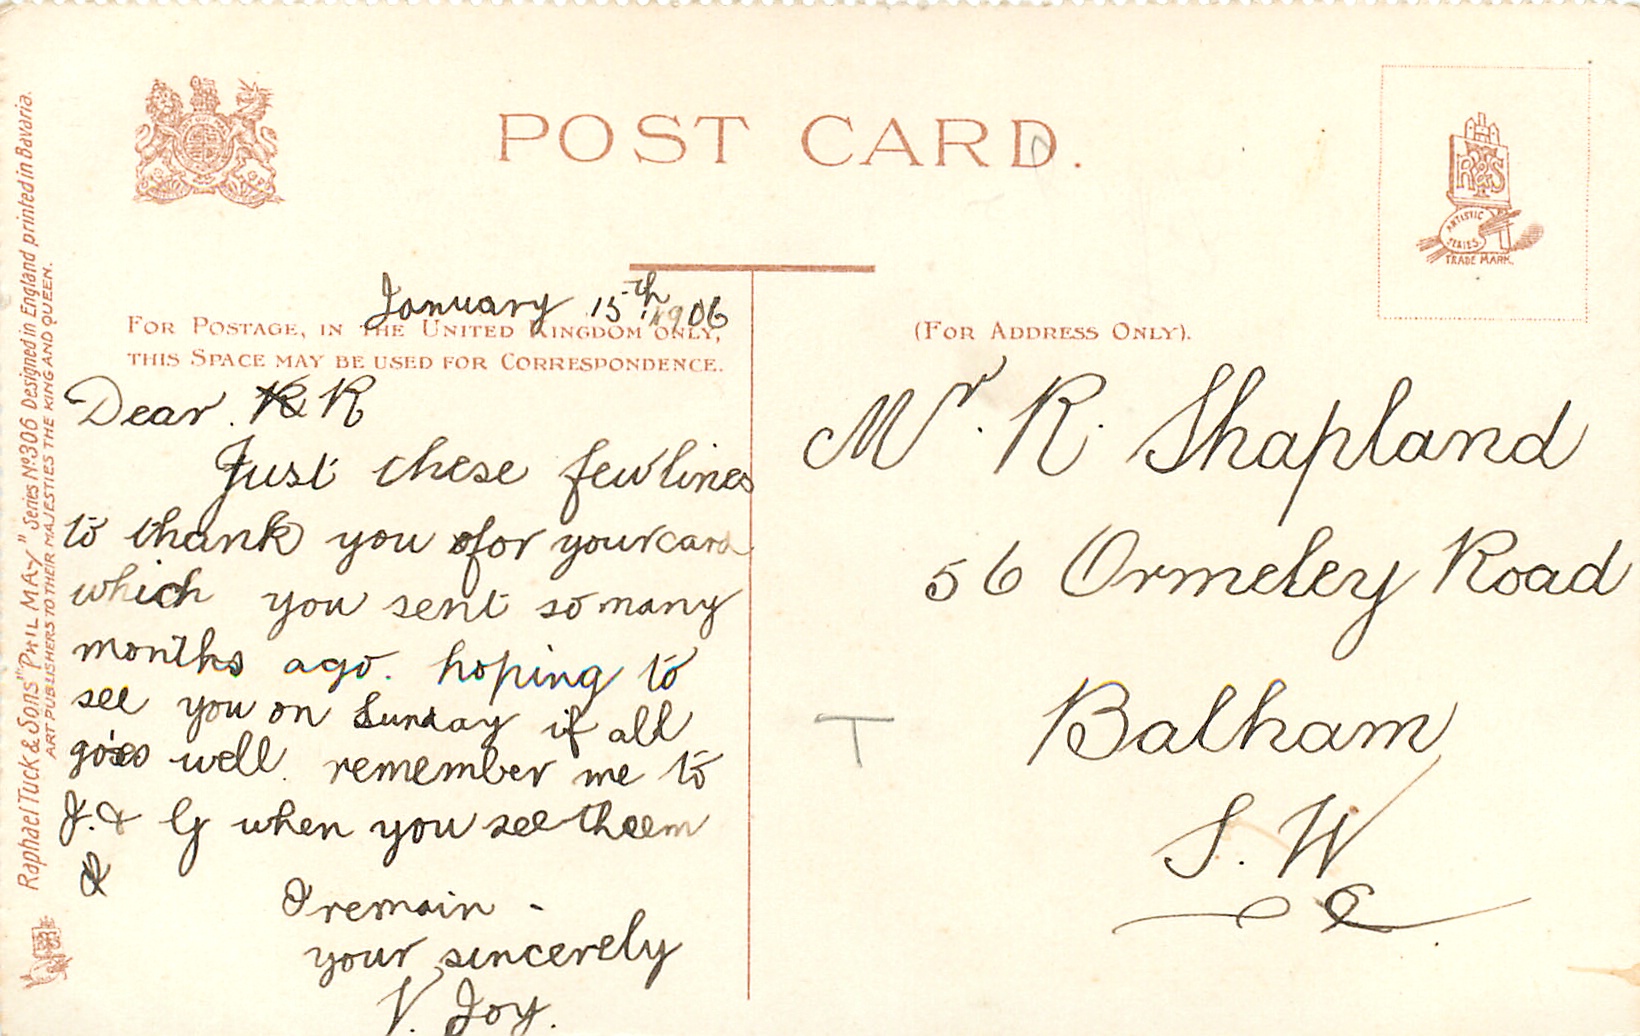 POST CARD.
R T & S
ARTISTIC
SERIES
TRADE MARK.
January 15th 1906
FOR POSTAGE, IN THE UNITED KINGDOM ONLY,
THIS SPACE MAY BE USED FOR CORRESPONDENCE.
Dear R
Just these few lines
to thank you for your card
which you sent so many
months ago. hoping to
see you on Sunday if all
goes well. remember me to
J. & G when you see them
&
I remain -
your sincerely
V. Joy.
(FOR ADDRESS ONLY).
Mr. R. Shapland
56 Ormeley Road
Balham
S. W
T
Raphael Tuck & Sons' "PHIL MAY" Series No. 306 Designed in England printed in Bavaria.
ART PUBLISHERS TO THEIR MAJESTIES THE KING AND QUEEN.